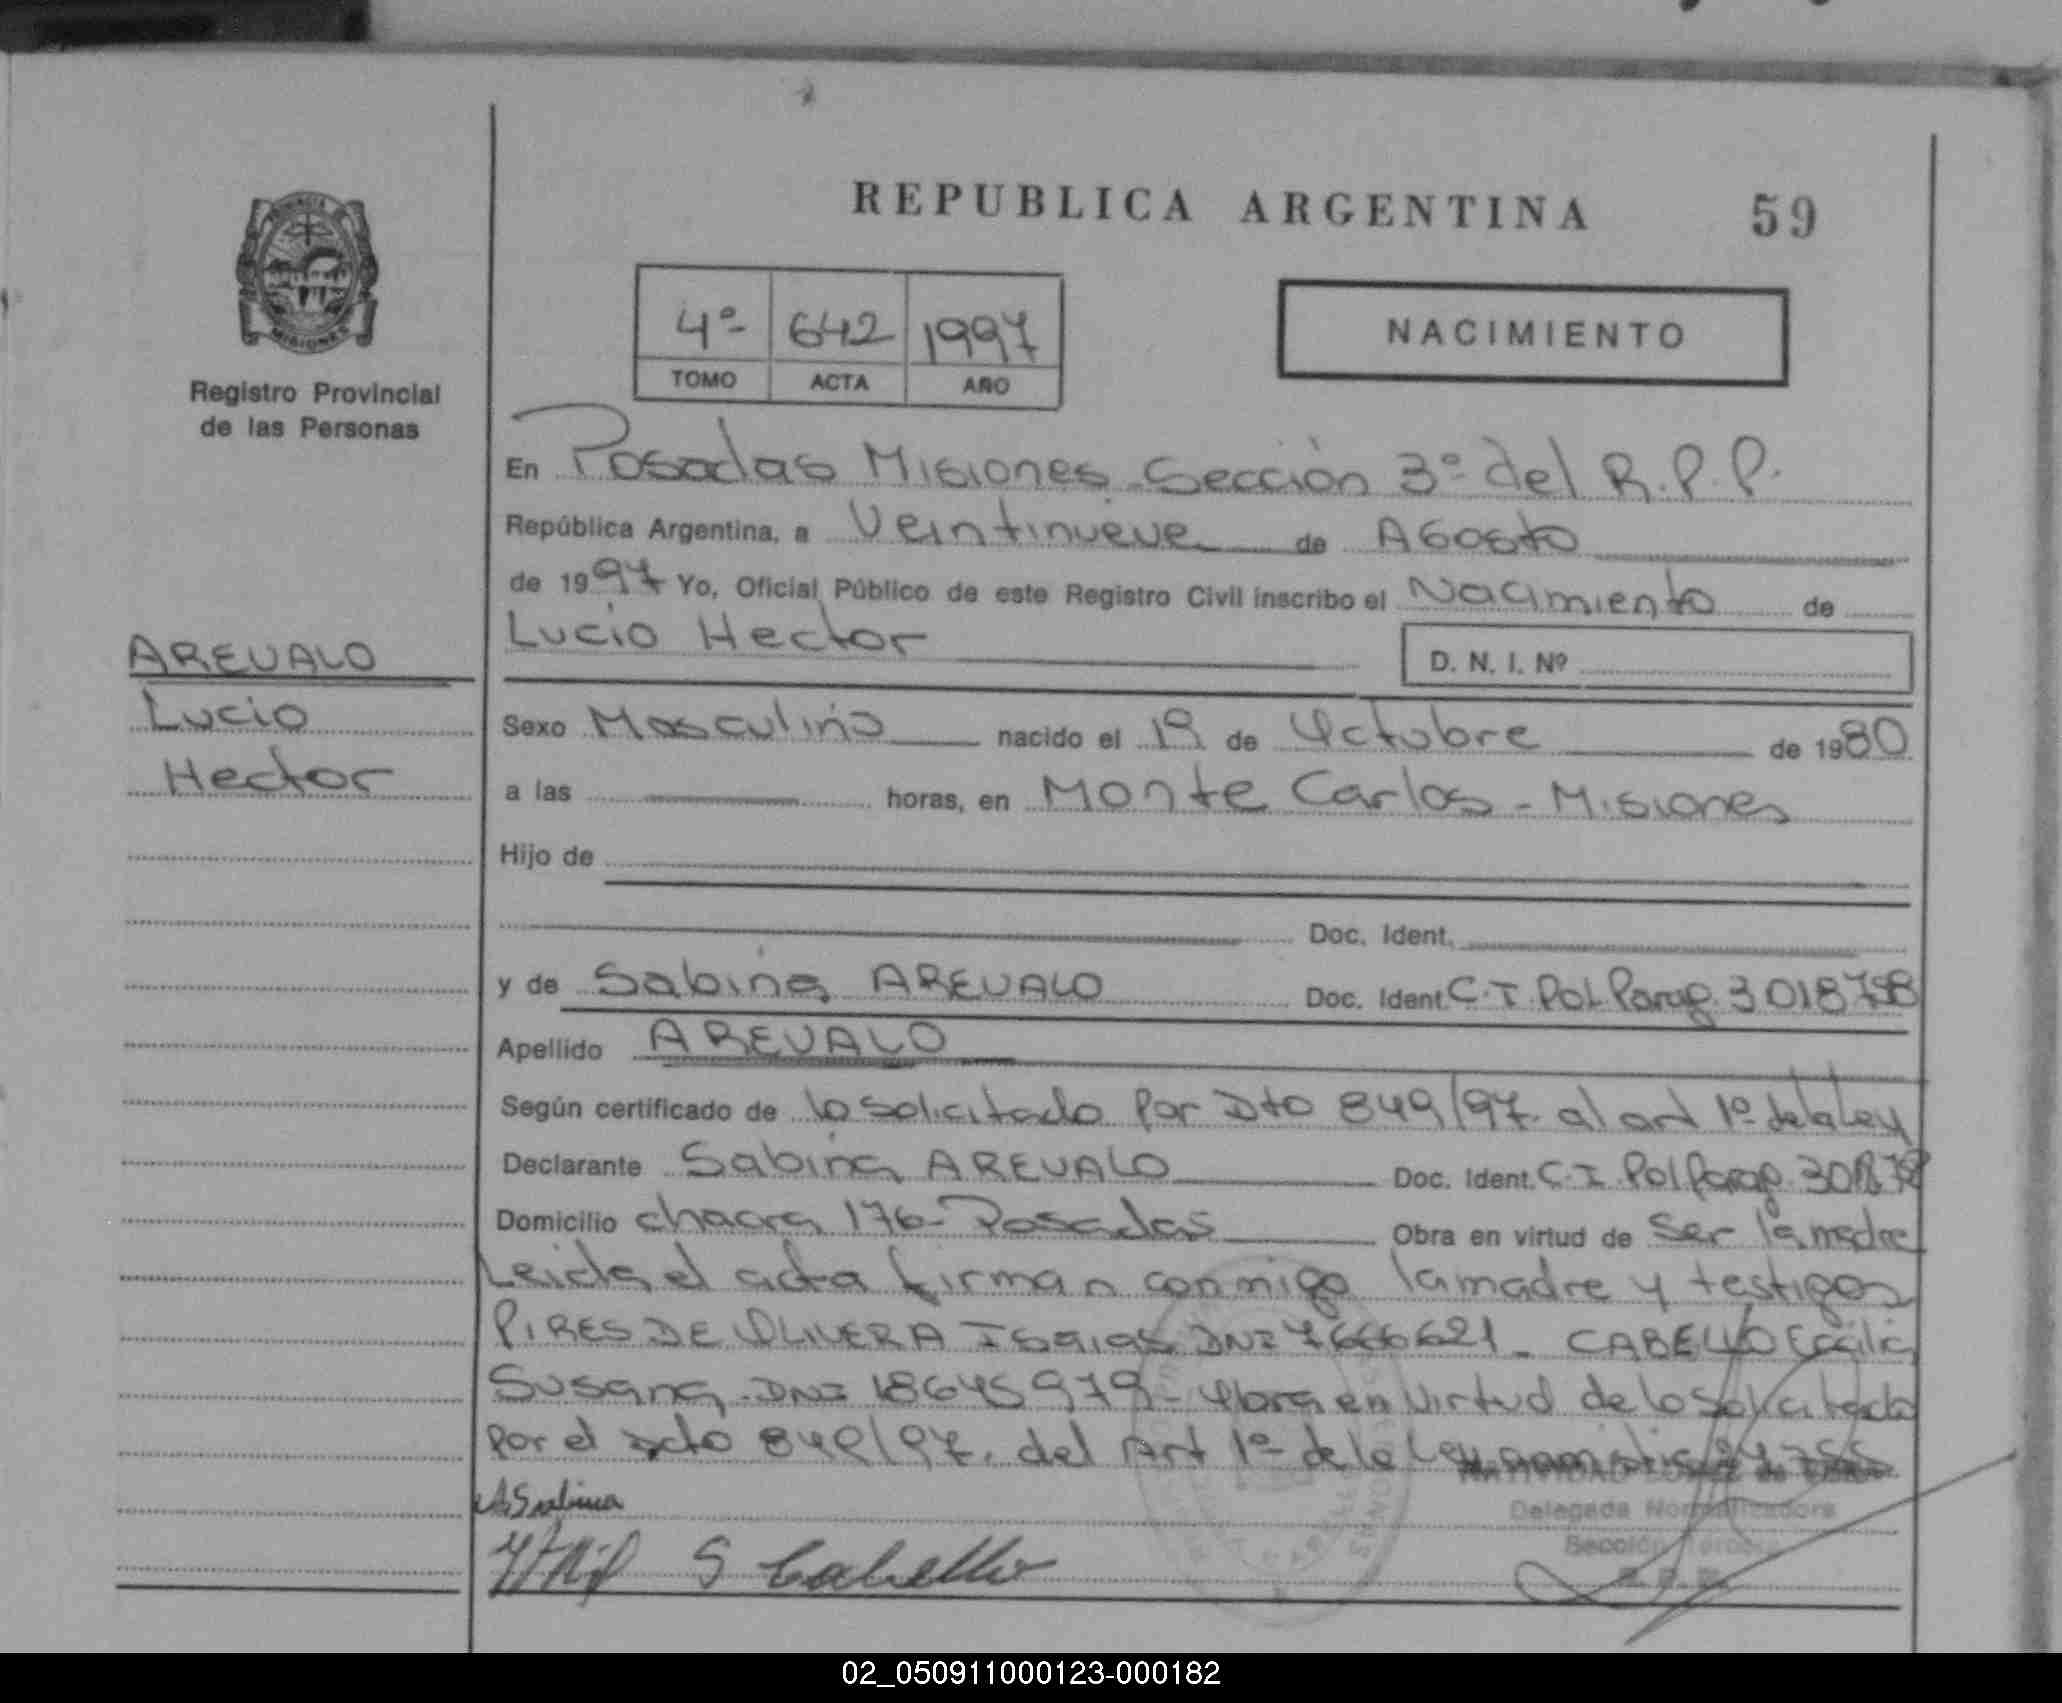 REPUBLICA ARGENTINA 59
PROVINCIA
MISIONES
Registro Provincial
de las Personas
4º 642 1997
TOMO ACTA AÑO
NACIMIENTO
En Posadas Misiones Sección 3º del R.P.P.
República Argentina, a Veintinueve de Agosto
de 1997 Yo, Oficial Público de este Registro Civil inscribo el Nacimiento de
Lucio Hector
D. N. I. Nº
AREVALO
Lucio
Hector
Sexo Masculino nacido el 19 de Octubre de 1980
a las horas, en Monte Carlos - Misiones
Hijo de
Doc. Ident.
y de Sabina AREVALO Doc. Ident. C.I. Pol Parag. 3018798
Apellido AREVALO
Según certificado de lo solicitado por Dto 849/97 al art 1º de la Ley
Declarante Sabina AREVALO Doc. Ident. C.I. Pol Parag.
Domicilio chacra 176 - Posadas Obra en virtud de Ser la madre
Leida el acta firman conmigo la madre y testigos
PIRES DE OLIVERA Isaias DNI 7666621 - CABELLO Cecilia
Susana DNI 18645979 - Obra en virtud de lo solicitado
por el Dcto 849/97. del Art 1º de la Ley 24.755
A. Sabina
Delegada Normalizadora
Sección Tercera
R. P. P.
S Cabello
02_050911000123-000182